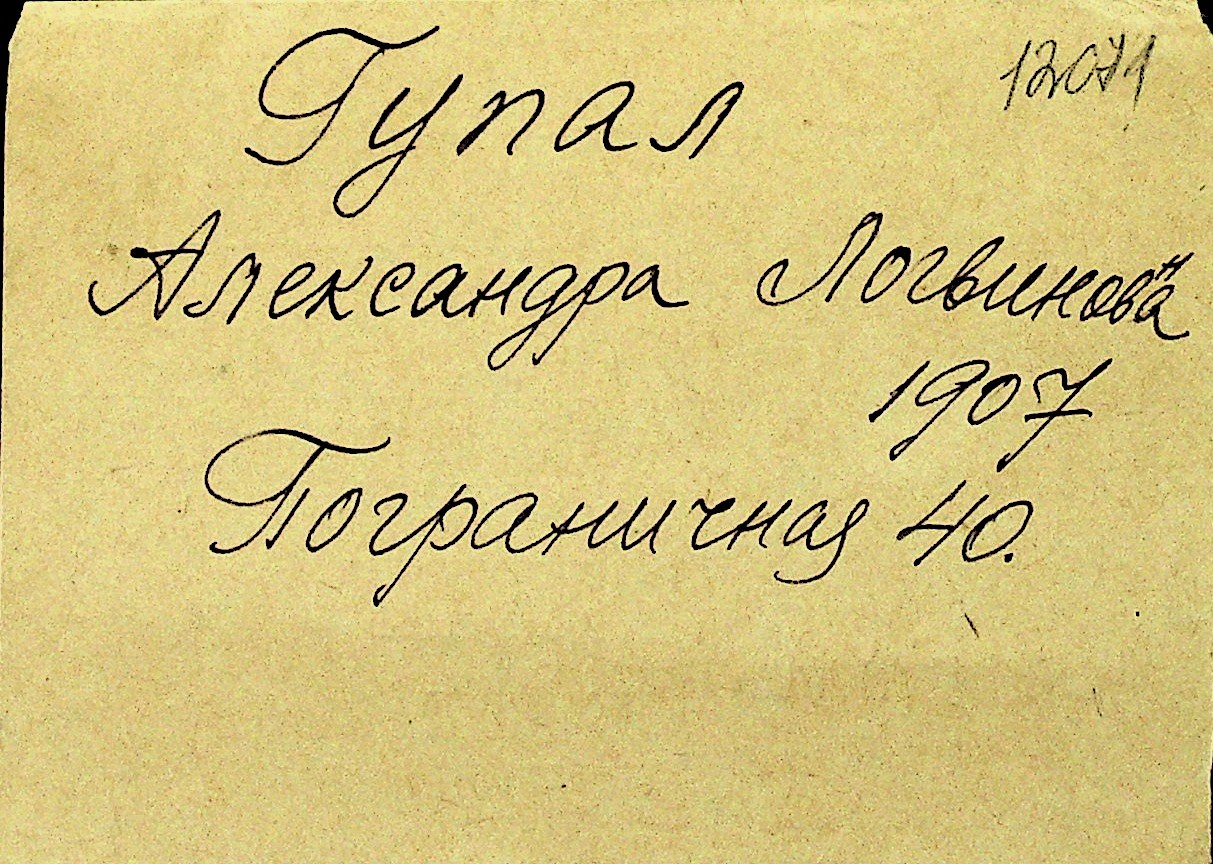 12071
Гупал
Александра Логвиновна
1907
Пограничная 40.